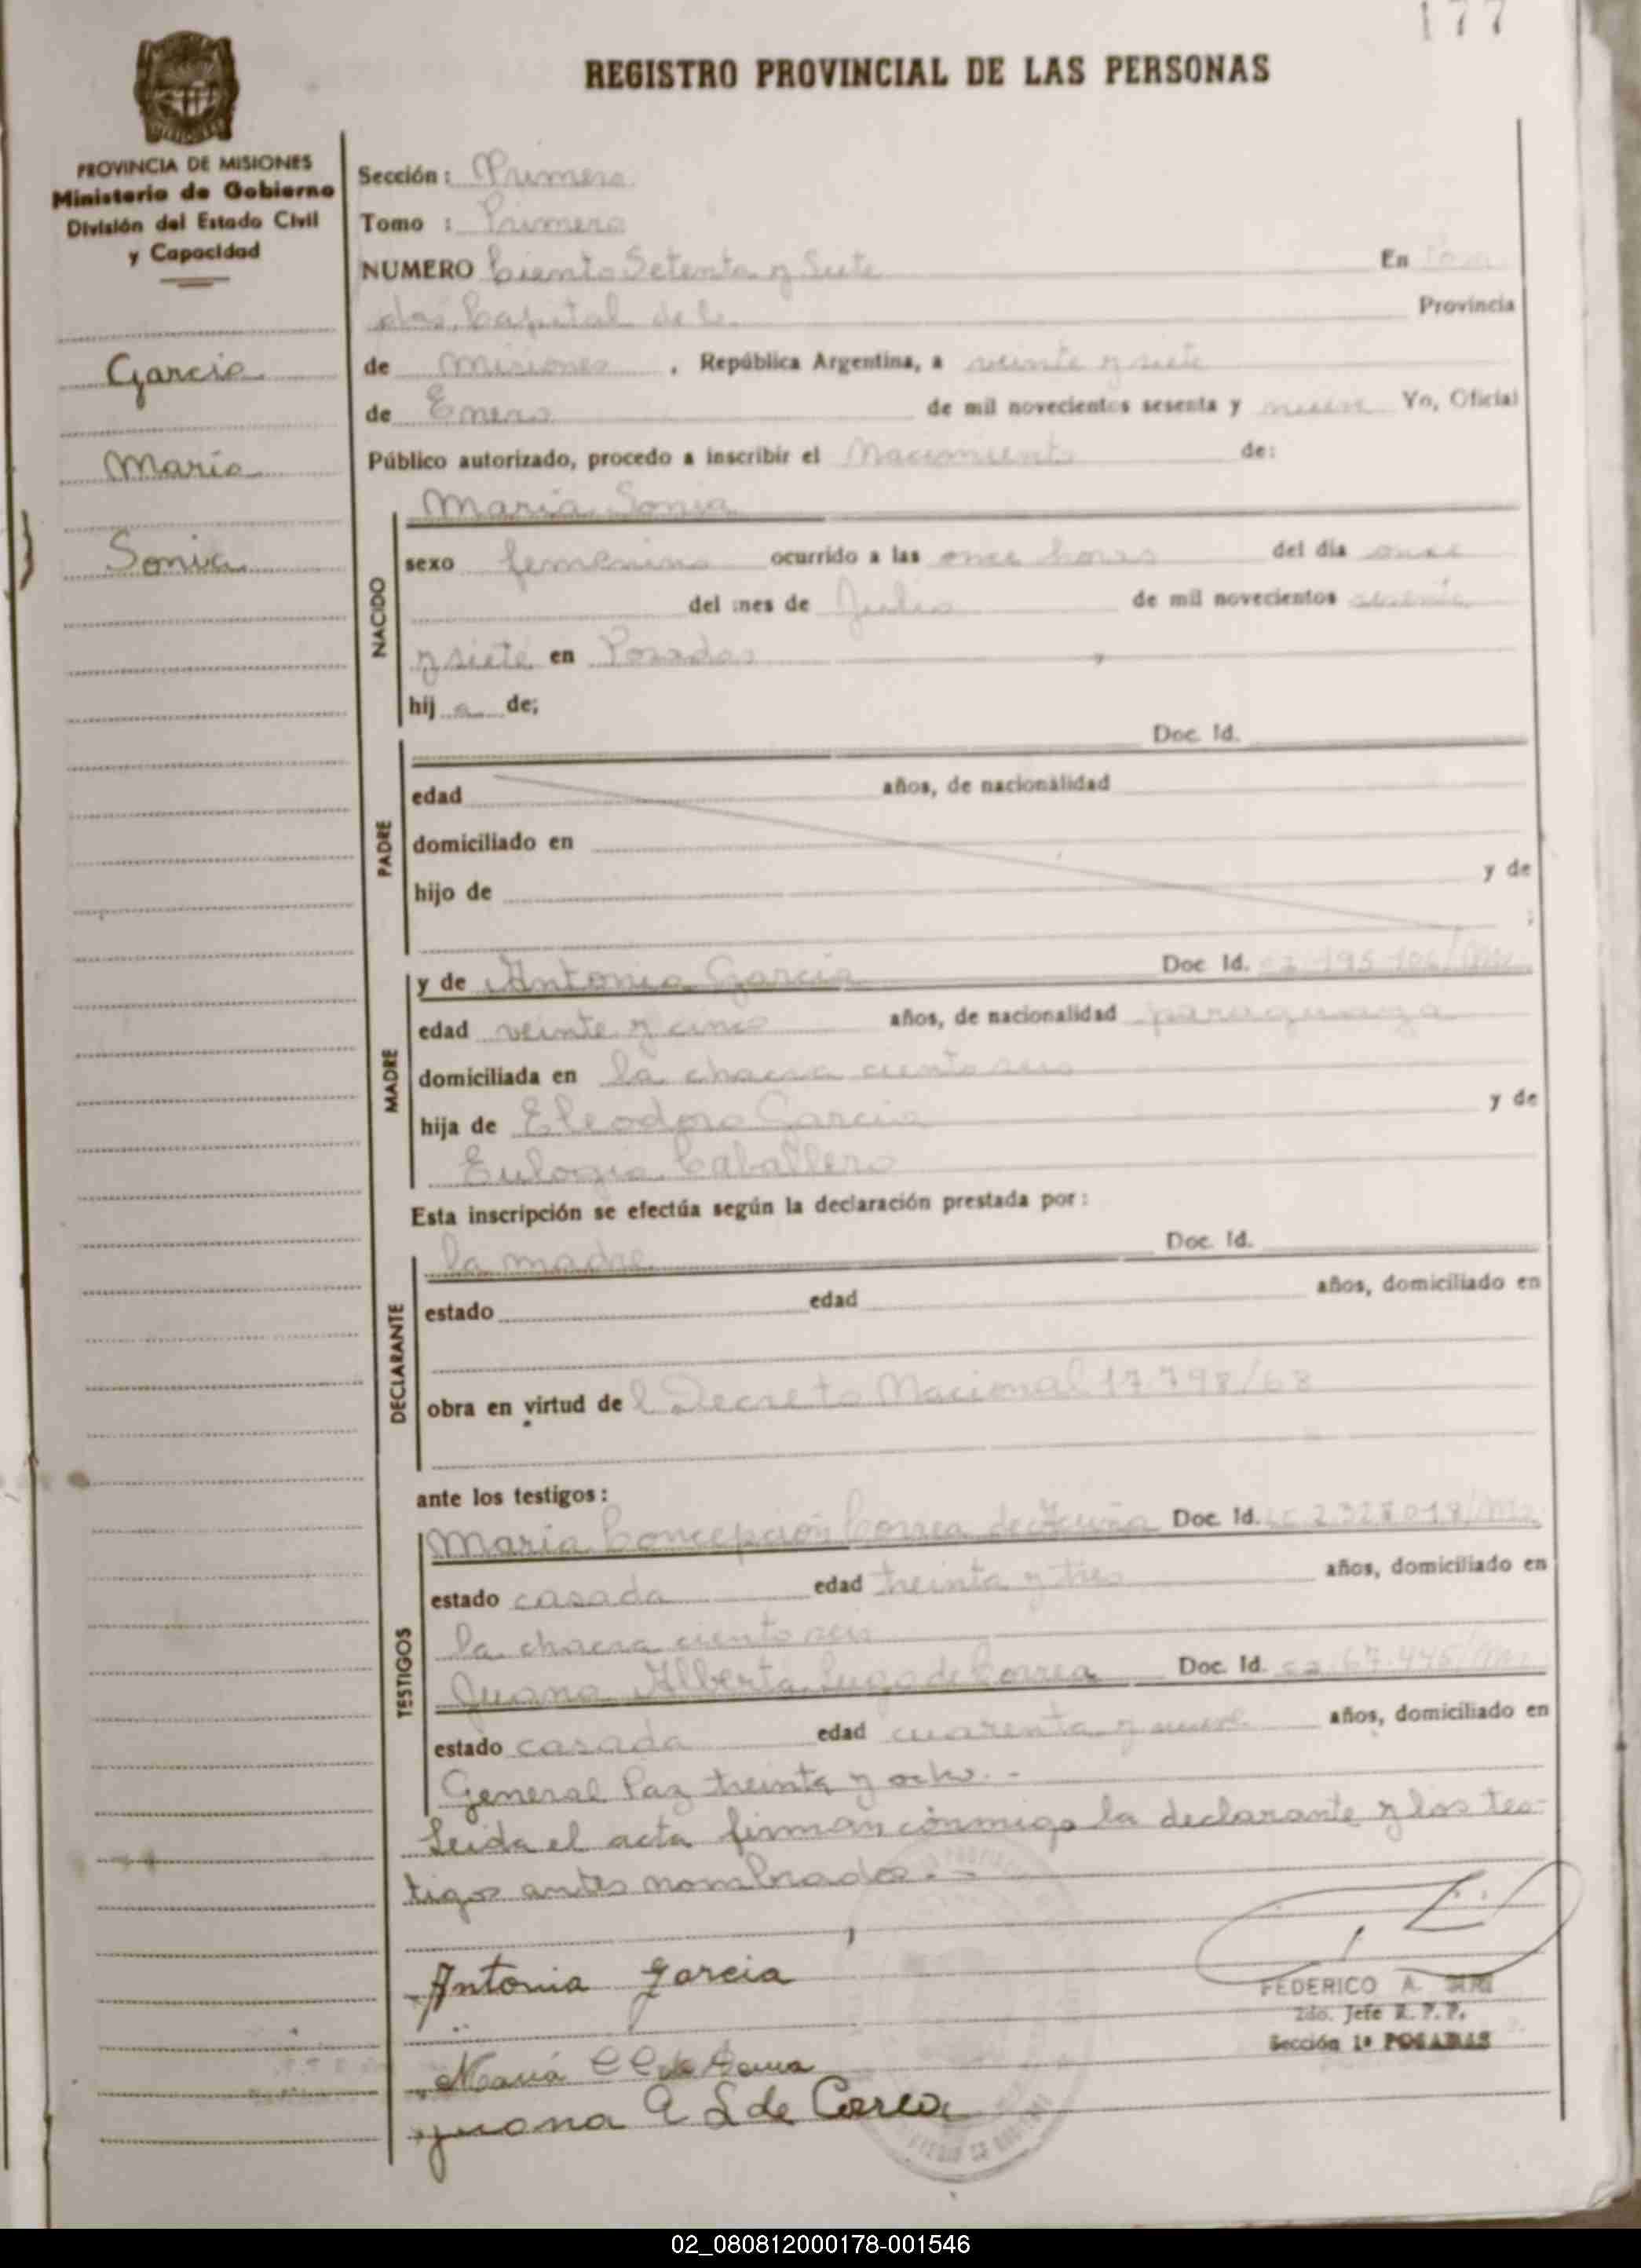 177
REGISTRO PROVINCIAL DE LAS PERSONAS
PROVINCIA DE MISIONES
Ministerio de Gobierno
División del Estado Civil
y Capacidad
Garcia
Maria
Sonia
Sección: Primera
Tomo : Primero
NUMERO Ciento Setenta y Siete En Posa
das, Capital de la Provincia
de Misiones, República Argentina, a veinte y siete
de Enero de mil novecientos sesenta y nueve Yo, Oficial
Público autorizado, procedo a inscribir el Nacimiento de:
NACIDO
Maria Sonia
sexo femenino ocurrido a las once horas del día once
del mes de Julio de mil novecientos sesenta
y siete en Posadas
hij a de;
PADRE
Doc. Id.
edad años, de nacionalidad
domiciliado en
hijo de y de
;
MADRE
y de Antonia Garcia Doc. Id.
edad veinte y cinco años, de nacionalidad paraguaya
domiciliada en la chacra ciento seis
hija de Eleodoro Garcia y de
Eulogia Caballero
Esta inscripción se efectúa según la declaración prestada por:
DECLARANTE
la madre Doc. Id.
estado edad años, domiciliado en
obra en virtud de l Decreto Nacional 17.798/68
ante los testigos:
TESTIGOS
Maria Concepción Correa de Doc. Id.
estado casada edad treinta y tres años, domiciliado en
la chacra ciento seis
Juana Alberta Lugo de Correa Doc. Id.
estado casada edad cuarenta y nueve años, domiciliado en
General Paz treinta y ocho.-
Leida el acta firman conmigo la declarante y los tes-
tigos antes nombrados.-
Antonia Garcia
FEDERICO A.
2do. Jefe R. P. P.
Sección 1ª POSADAS
Maria C C de
Juana A L de Correa
02_080812000178-001546